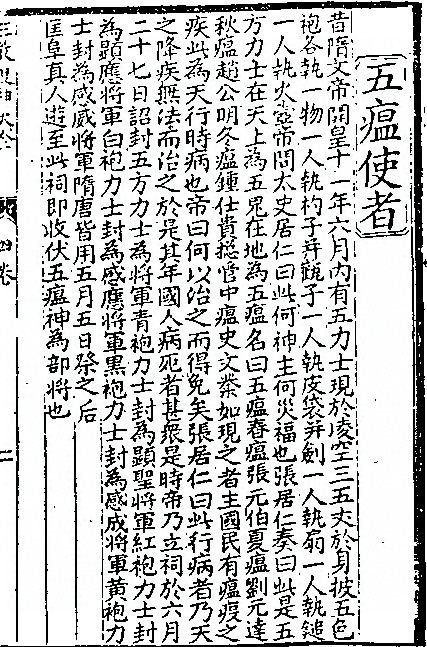 五瘟使者
昔隋文帝開皇十一年六月內有五力士現於凌空三五丈於身披五色
袍各執一物一人執杓子并觀子一人執皮袋并劍一人執扇一人執鎚
一人執火壺帝問太史居仁曰此何神主何災福也張居仁奏曰此是五
方力士在天上為五鬼在地為五瘟名曰五瘟春瘟張元伯夏瘟劉元達
秋瘟趙公明冬瘟鍾仕貴總管中瘟史文業如現之者主國民有瘟疫之
疾此為天行時病也帝曰何以治之而得免矣張居仁曰此行病者乃天
之降疾無法而治之於是其年國人病死者甚眾是時帝乃立祠於六月
二十七日詔封五方力士為將軍青袍力士封為顯聖將軍紅袍力士封
為顯應將軍白袍力士封為感應將軍黑袍力士封為感成將軍黃袍力
士封為感威將軍隋唐皆用五月五日祭之后
匡阜真人遊至此祠即收伏五瘟神為部將也
四卷